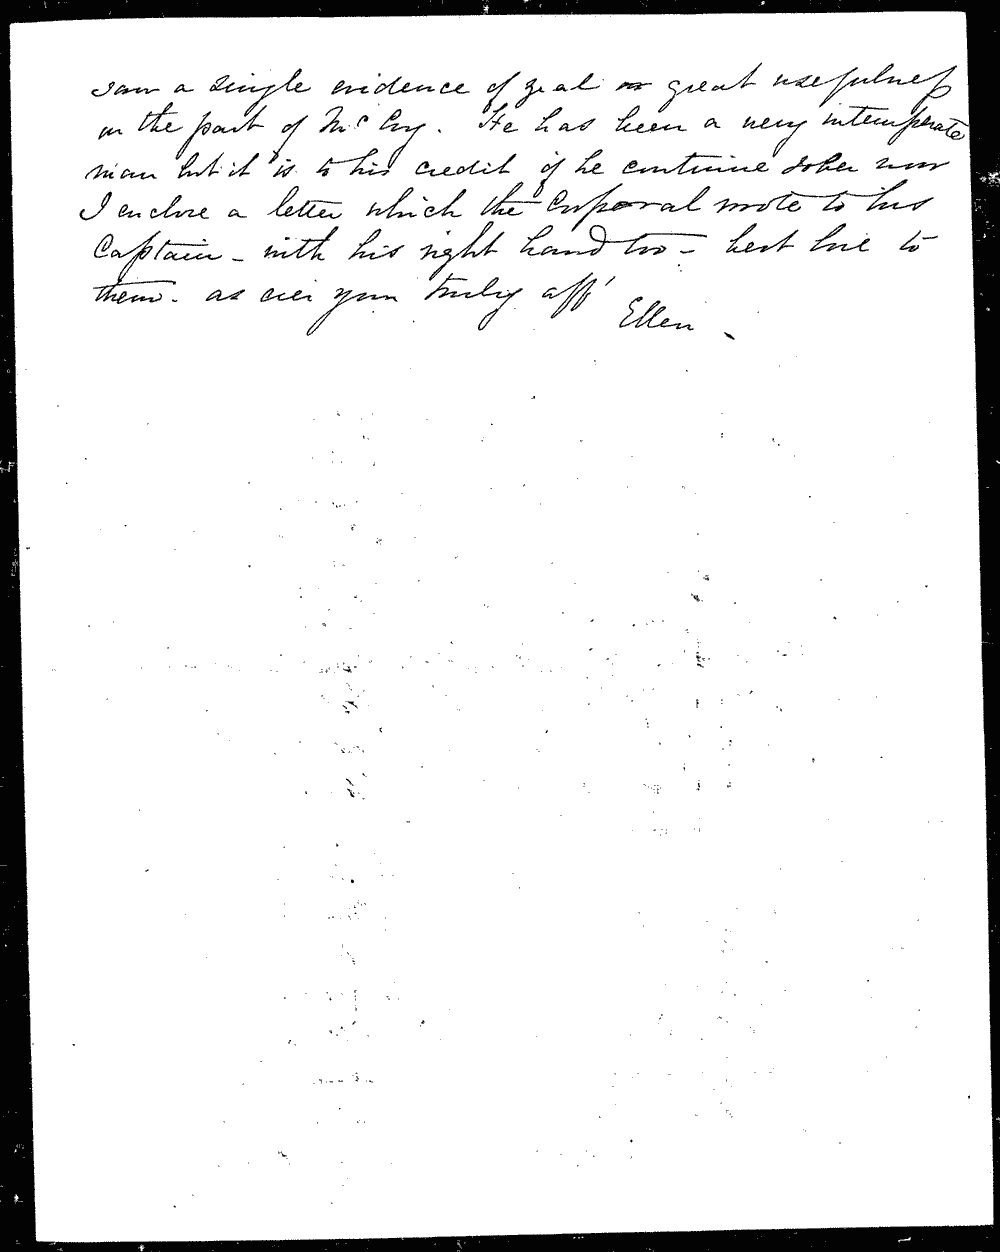 saw a single evidence of zeal or great usefulness
on the part of McCoy. He has been a very intemperate
man but it is to his credit if he continue sober now
I enclose a letter which the Corporal wrote to his
Captain - with his right hand too - best love to
them - as ever yours truly aff'
Ellen -